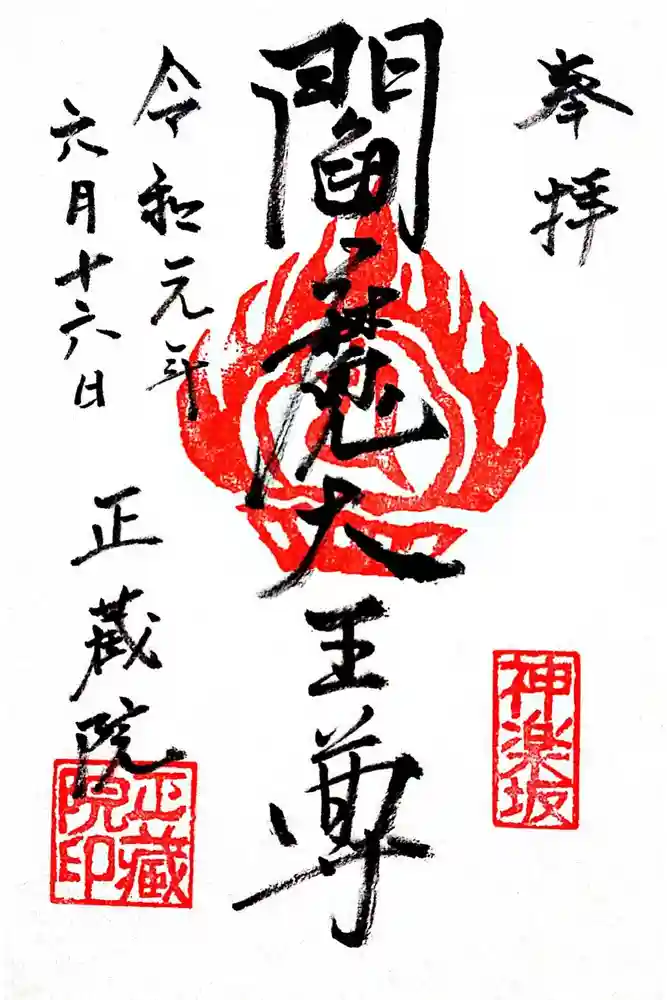 奉拝
神楽坂
閻魔大王尊
令和元年
六月十六日
正蔵院
正藏
院印